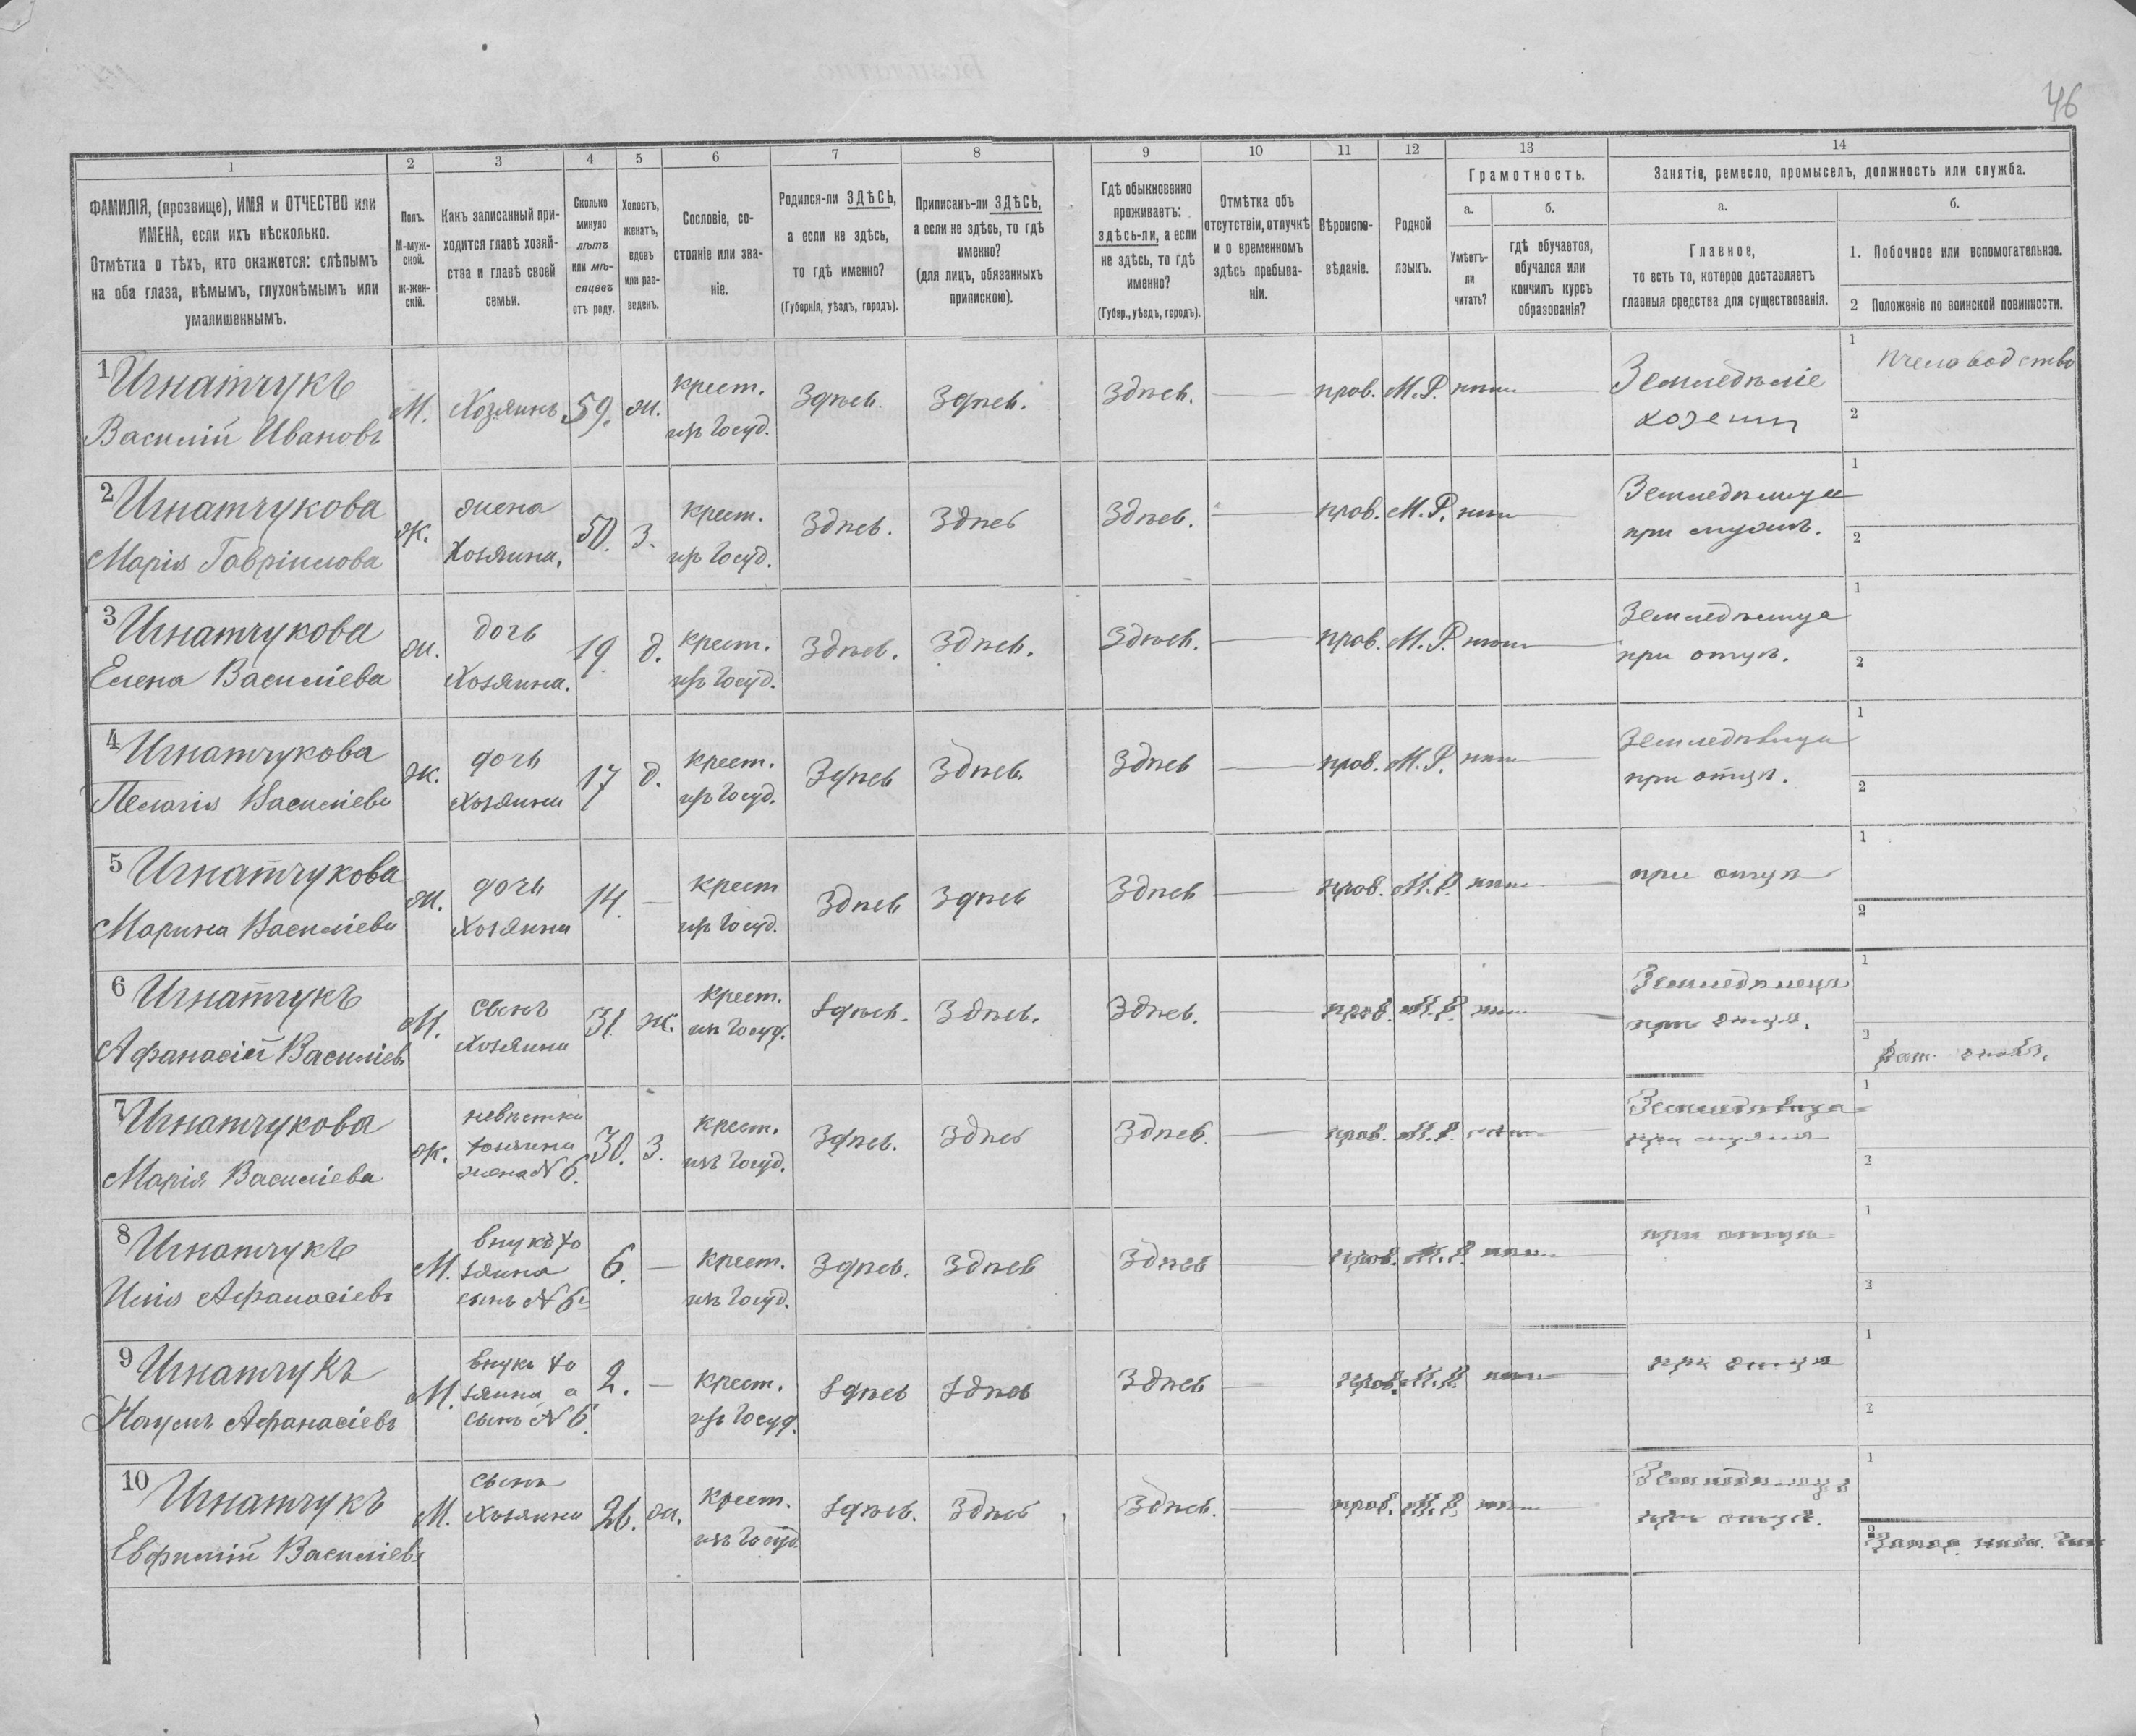 46
1 2 3 4 5 6 7 8 9 10 11 12 13 14
ФАМИЛІЯ, (прозвище), ИМЯ и ОТЧЕСТВО или
ИМЕНА, если ихъ нѣсколько.
Отмѣтка о тѣхъ, кто окажется: слѣпымъ
на оба глаза, нѣмымъ, глухонѣмымъ или
умалишеннымъ.
Полъ.
М-муж-
ской.
Ж-жен-
скій.
Какъ записанный при-
ходится главѣ хозяй-
ства и главѣ своей
семьи.
Сколько
минуло
лѣтъ
или мѣ-
сяцевъ
отъ роду.
Холостъ,
женатъ,
вдовъ
или раз-
веденъ.
Сословіе, со-
стояніе или зва-
ніе.
Родился-ли ЗДѢСЬ,
а если не здѣсь,
то гдѣ именно?
(Губернія, уѣздъ, городъ).
Приписанъ-ли ЗДѢСЬ,
а если не здѣсь, то гдѣ
именно?
(для лицъ, обязанныхъ
припискою).
Гдѣ обыкновенно
проживаетъ:
здѣсь-ли, а если
не здѣсь, то гдѣ
именно?
(Губер., уѣздъ, городъ).
Отмѣтка объ
отсутствіи, отлучкѣ
и о временномъ
здѣсь пребыва-
ніи.
Вѣроиспо-
вѣданіе.
Родной
языкъ.
Грамотность.
а.
Умѣетъ-
ли
читать?
б.
гдѣ обучается,
обучался или
кончилъ курсъ
образованія?
Занятіе, ремесло, промыселъ, должность или служба.
а.
Главное,
то есть то, которое доставляетъ
главныя средства для существованія.
б.
1. Побочное или вспомогательное.
2 Положеніе по воинской повинности.
1 Игнатчукъ
Василій Ивановъ
М. Хозяинъ 59. ж. крест.
изъ Госуд. Здѣсь. Здѣсь. Здѣсь. — пров. М.Р. нѣтъ — Земледѣліе
хозяинъ
1 пчеловодство
2
2 Игнатчукова
Марія Гавріилова
ж. жена
Хозяина, 50. З. крест.
изъ Госуд. Здѣсь. Здѣсь Здѣсь. — пров. М.Р. нѣтъ — Земледѣлица
при мужѣ.
1
2
3 Игнатчукова
Елена Василіева
ж. дочь
Хозяина. 19 д. крест.
изъ Госуд. Здѣсь. Здѣсь. Здѣсь. — пров. М.Р. нѣтъ — Земледѣлица
при отцѣ.
1
2
4 Игнатчукова
Пелагія Василіева
ж. дочь
Хозяина 17 д. крест.
изъ Госуд. Здѣсь Здѣсь. Здѣсь — пров. М.Р. нѣтъ — Земледѣлица
при отцѣ.
1
2
5 Игнатчукова
Марина Василіева
ж. дочь
Хозяина 14. — крест
изъ Госуд. Здѣсь Здѣсь Здѣсь — пров. М.Р. нѣтъ — при отцѣ
1
2
6 Игнатчукъ
Афанасій Василіевъ
М. сынъ
Хозяина 31 ж. крест.
изъ Госуд. Здѣсь. Здѣсь. Здѣсь. — пров. М.Р. нѣтъ —
при отцѣ.
1
2
7 Игнатчукова
Марія Василіева
ж. невѣстка
хозяина
жена N 6. 30. З. крест.
изъ Госуд. Здѣсь. Здѣсь Здѣсь. — пров. М.Р. нѣтъ — Земледѣлица
при мужѣ
1
2
8 Игнатчукъ
Илія Афанасіевъ
М. внукъ хо
зяина
сынъ N 6 6. — крест.
изъ Госуд. Здѣсь. Здѣсь Здѣсь — пров. М.Р. нѣтъ — при отцѣ
1
2
9 Игнатчукъ
Наумъ Афанасіевъ
М. внукъ хо
зяина, а
сынъ N 6. 2. — крест.
изъ Госуд. Здѣсь Здѣсь Здѣсь — пров. М.Р. нѣтъ — при отцѣ
1
2
10 Игнатчукъ
Евфимій Василіевъ
М. сынъ
Хозяина 26. ж. крест.
изъ Госуд. Здѣсь. Здѣсь Здѣсь. — пров. М.Р. нѣтъ —
при отцѣ.
1
2